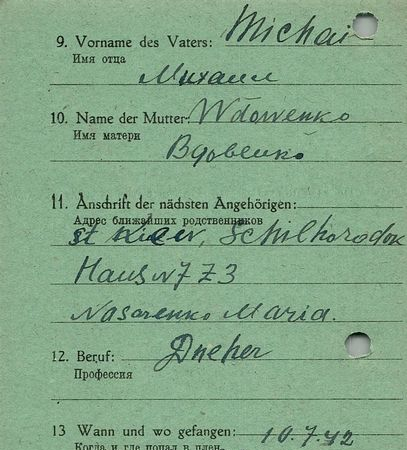 9. Vorname des Vaters: Michai
Имя отца
Михаил
10. Name der Mutter: Wdowenko
Имя матери
Вдовенко
11. Anschrift der nächsten Angehörigen:
Адрес ближайших родственников
st Kiew, Schilhorodok
Haus N7 Z3
Nasarenko Maria.
12. Beruf: Dreher
Профессия
13 Wann und wo gefangen: 10.7.42
Когда и где попал в плен-